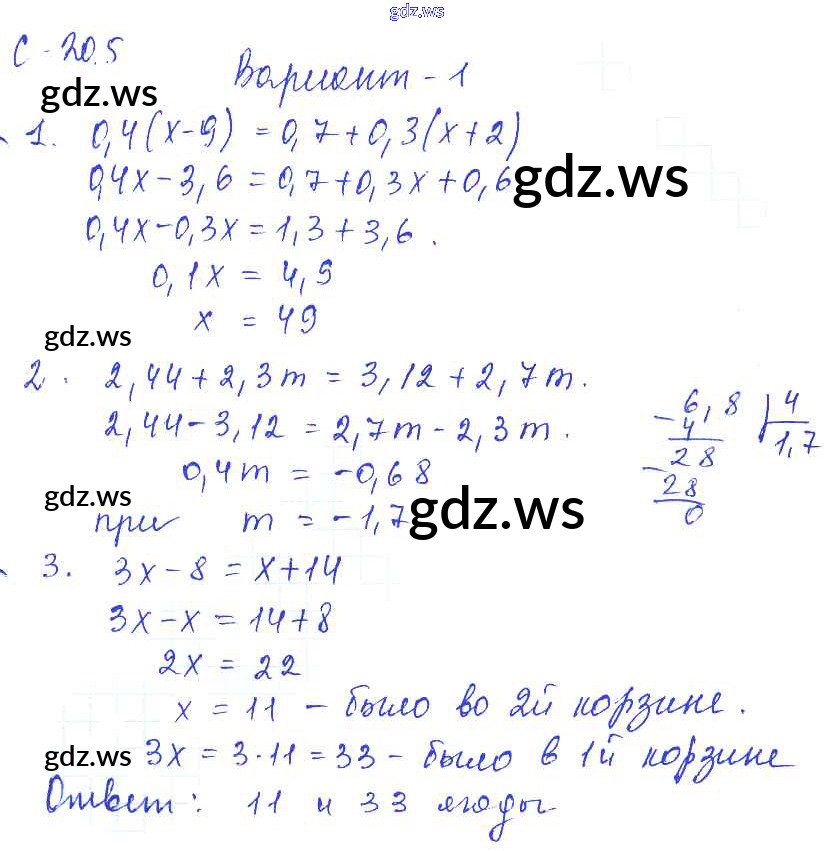 gdz.ws
С-20.5
gdz.ws
Вариант-1
1. 0,4(x-9) = 0,7+0,3(x+2)
0,4x-3,6 = 0,7+0,3x+0,6
gdz.ws
0,4x-0,3x = 1,3+3,6.
0,1x = 4,9
x = 49
gdz.ws
2. 2,44+2,3m = 3,12+2,7m.
2,44-3,12 = 2,7m-2,3m.
0,4m = -0,68
gdz.ws
при m = -1,7
gdz.ws
-6,8 | 4
4 1,7
-28
28
0
3. 3x-8 = x+14
3x-x = 14+8
2x = 22
x = 11 - было во 2й корзине.
gdz.ws
3x = 3·11 = 33 - было в 1й корзине
Ответ: 11 и 33 ягоды